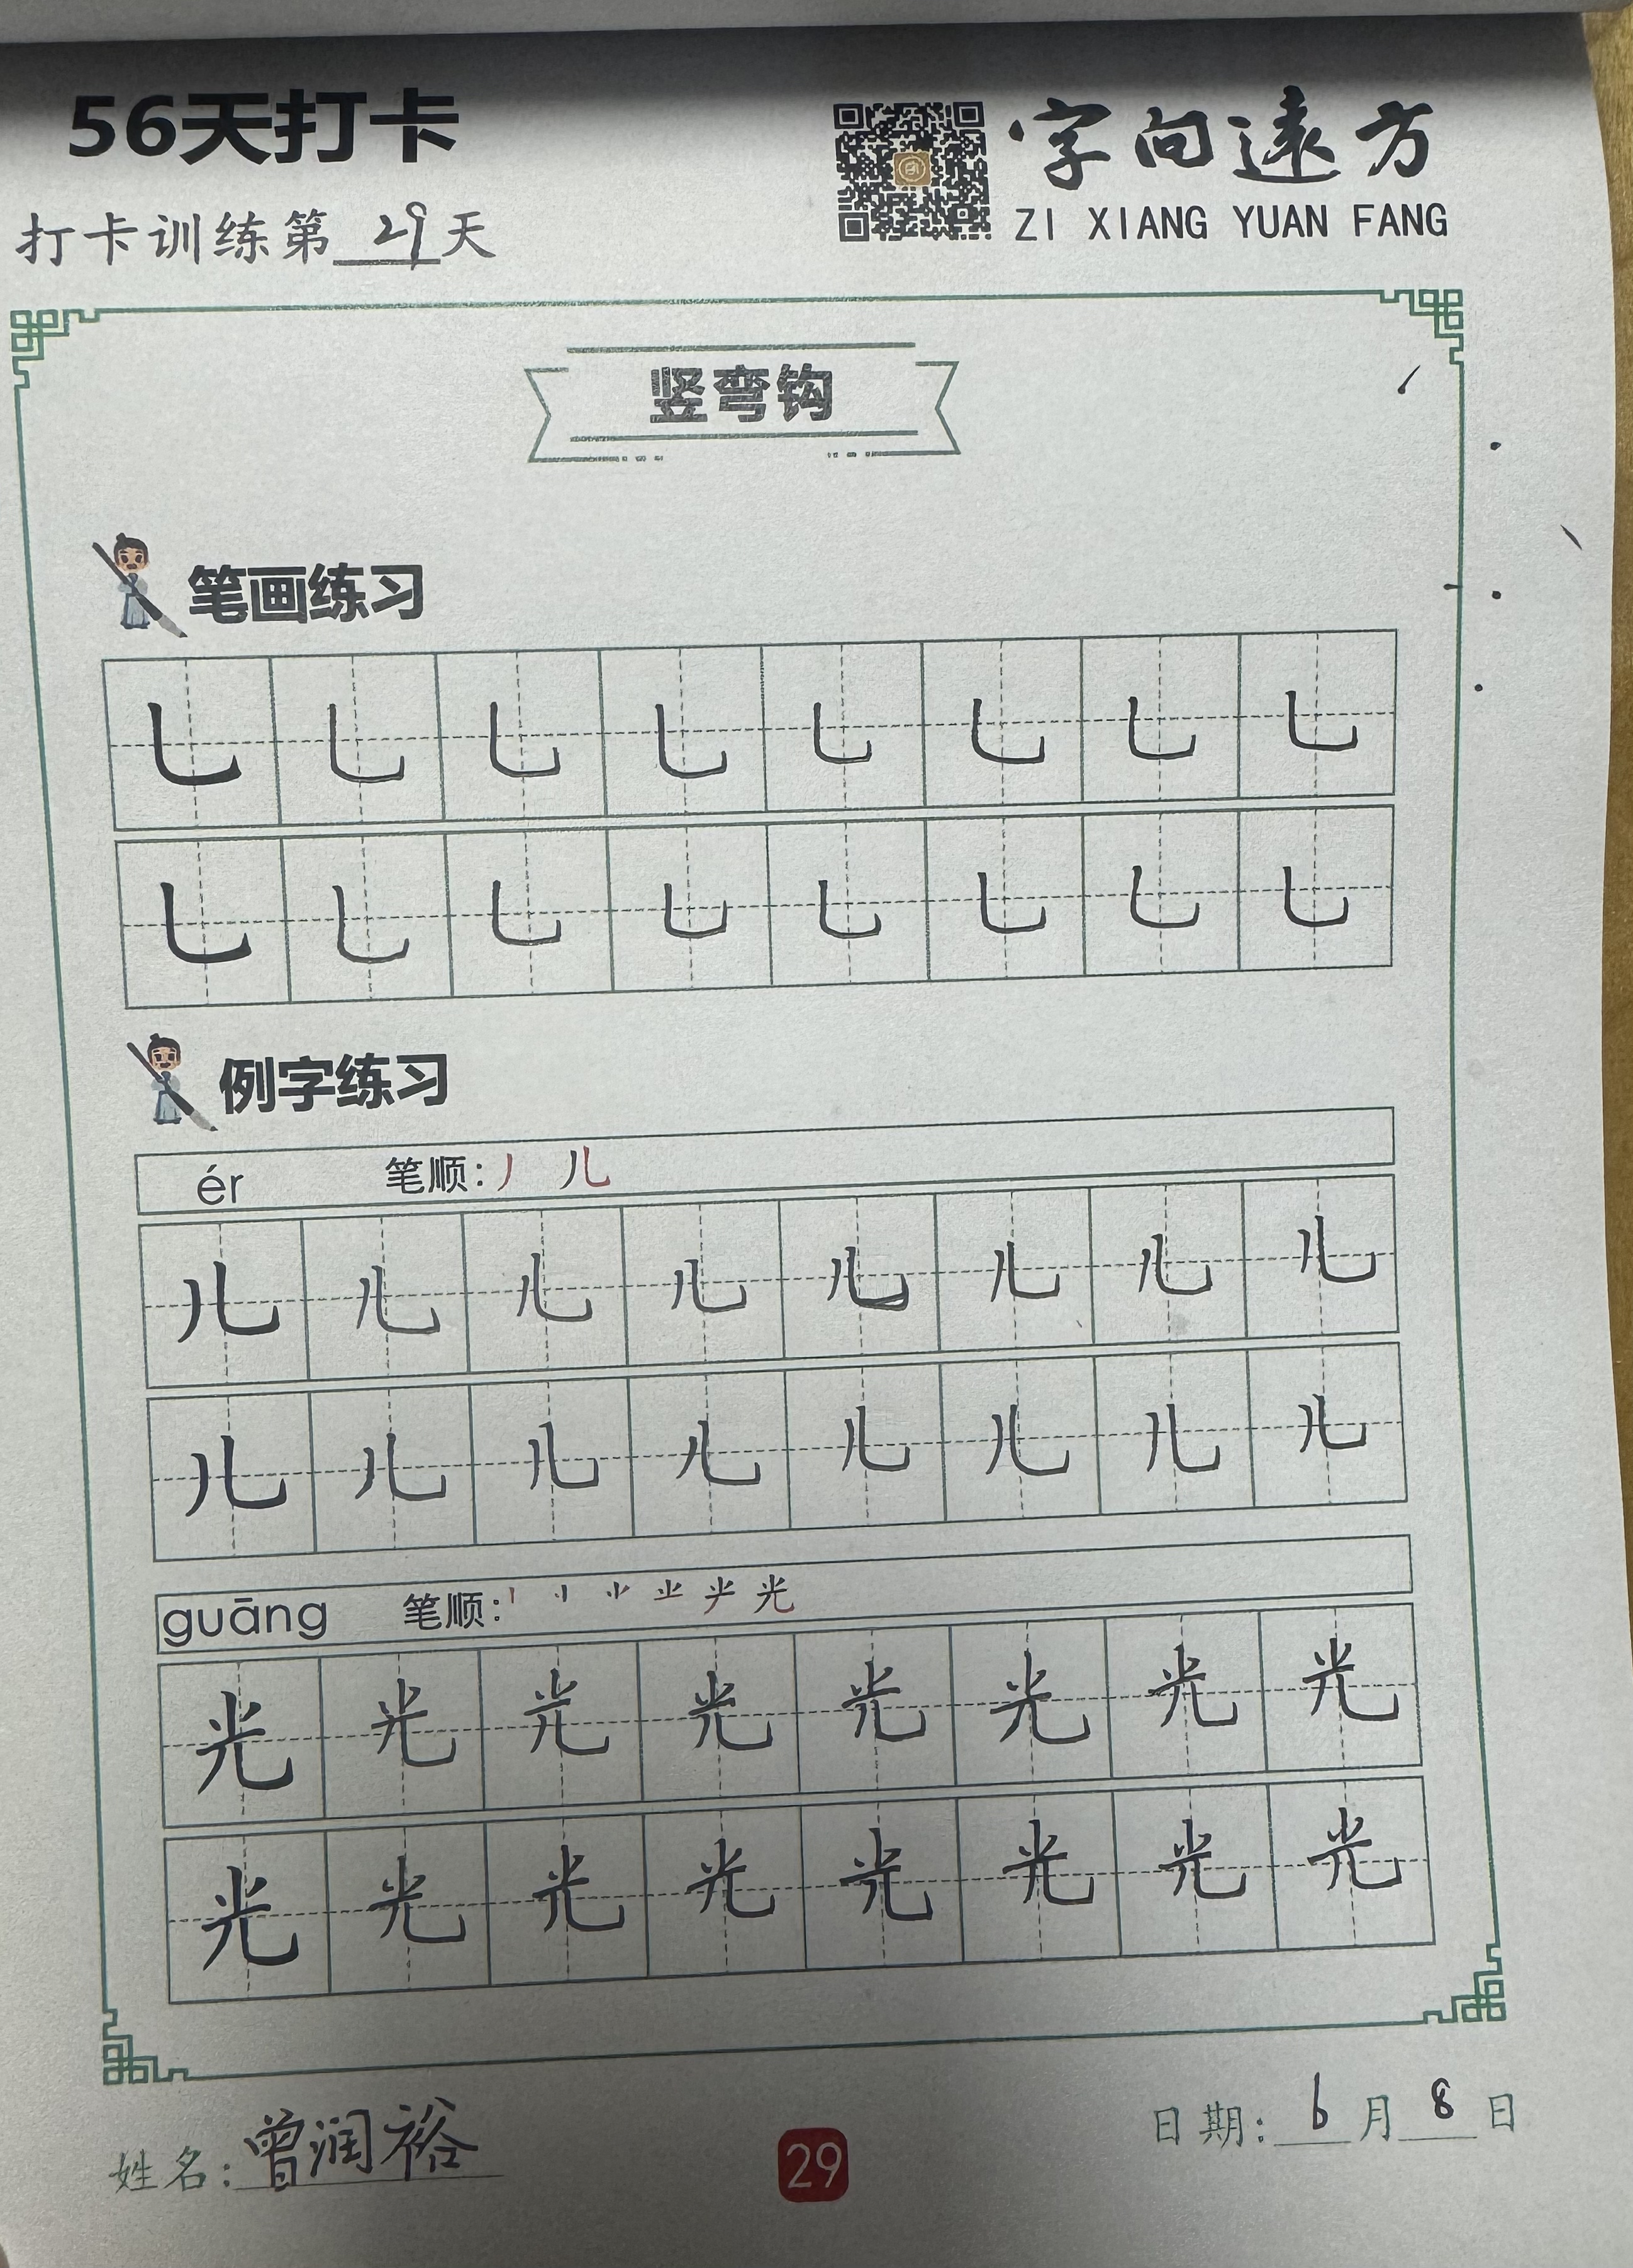 56天打卡
字向遠方
ZI XIANG YUAN FANG
打卡训练第29天
竖弯钩
笔画练习
乚 乚 乚 乚 乚 乚 乚 乚
乚 乚 乚 乚 乚 乚 乚 乚
例字练习
ér 笔顺:丿 儿
儿 儿 儿 儿 儿 儿 儿 儿
儿 儿 儿 儿 儿 儿 儿 儿
guāng 笔顺: 光
光 光 光 光 光 光 光 光
光 光 光 光 光 光 光 光
姓名:曾润裕
29
日期:6月8日